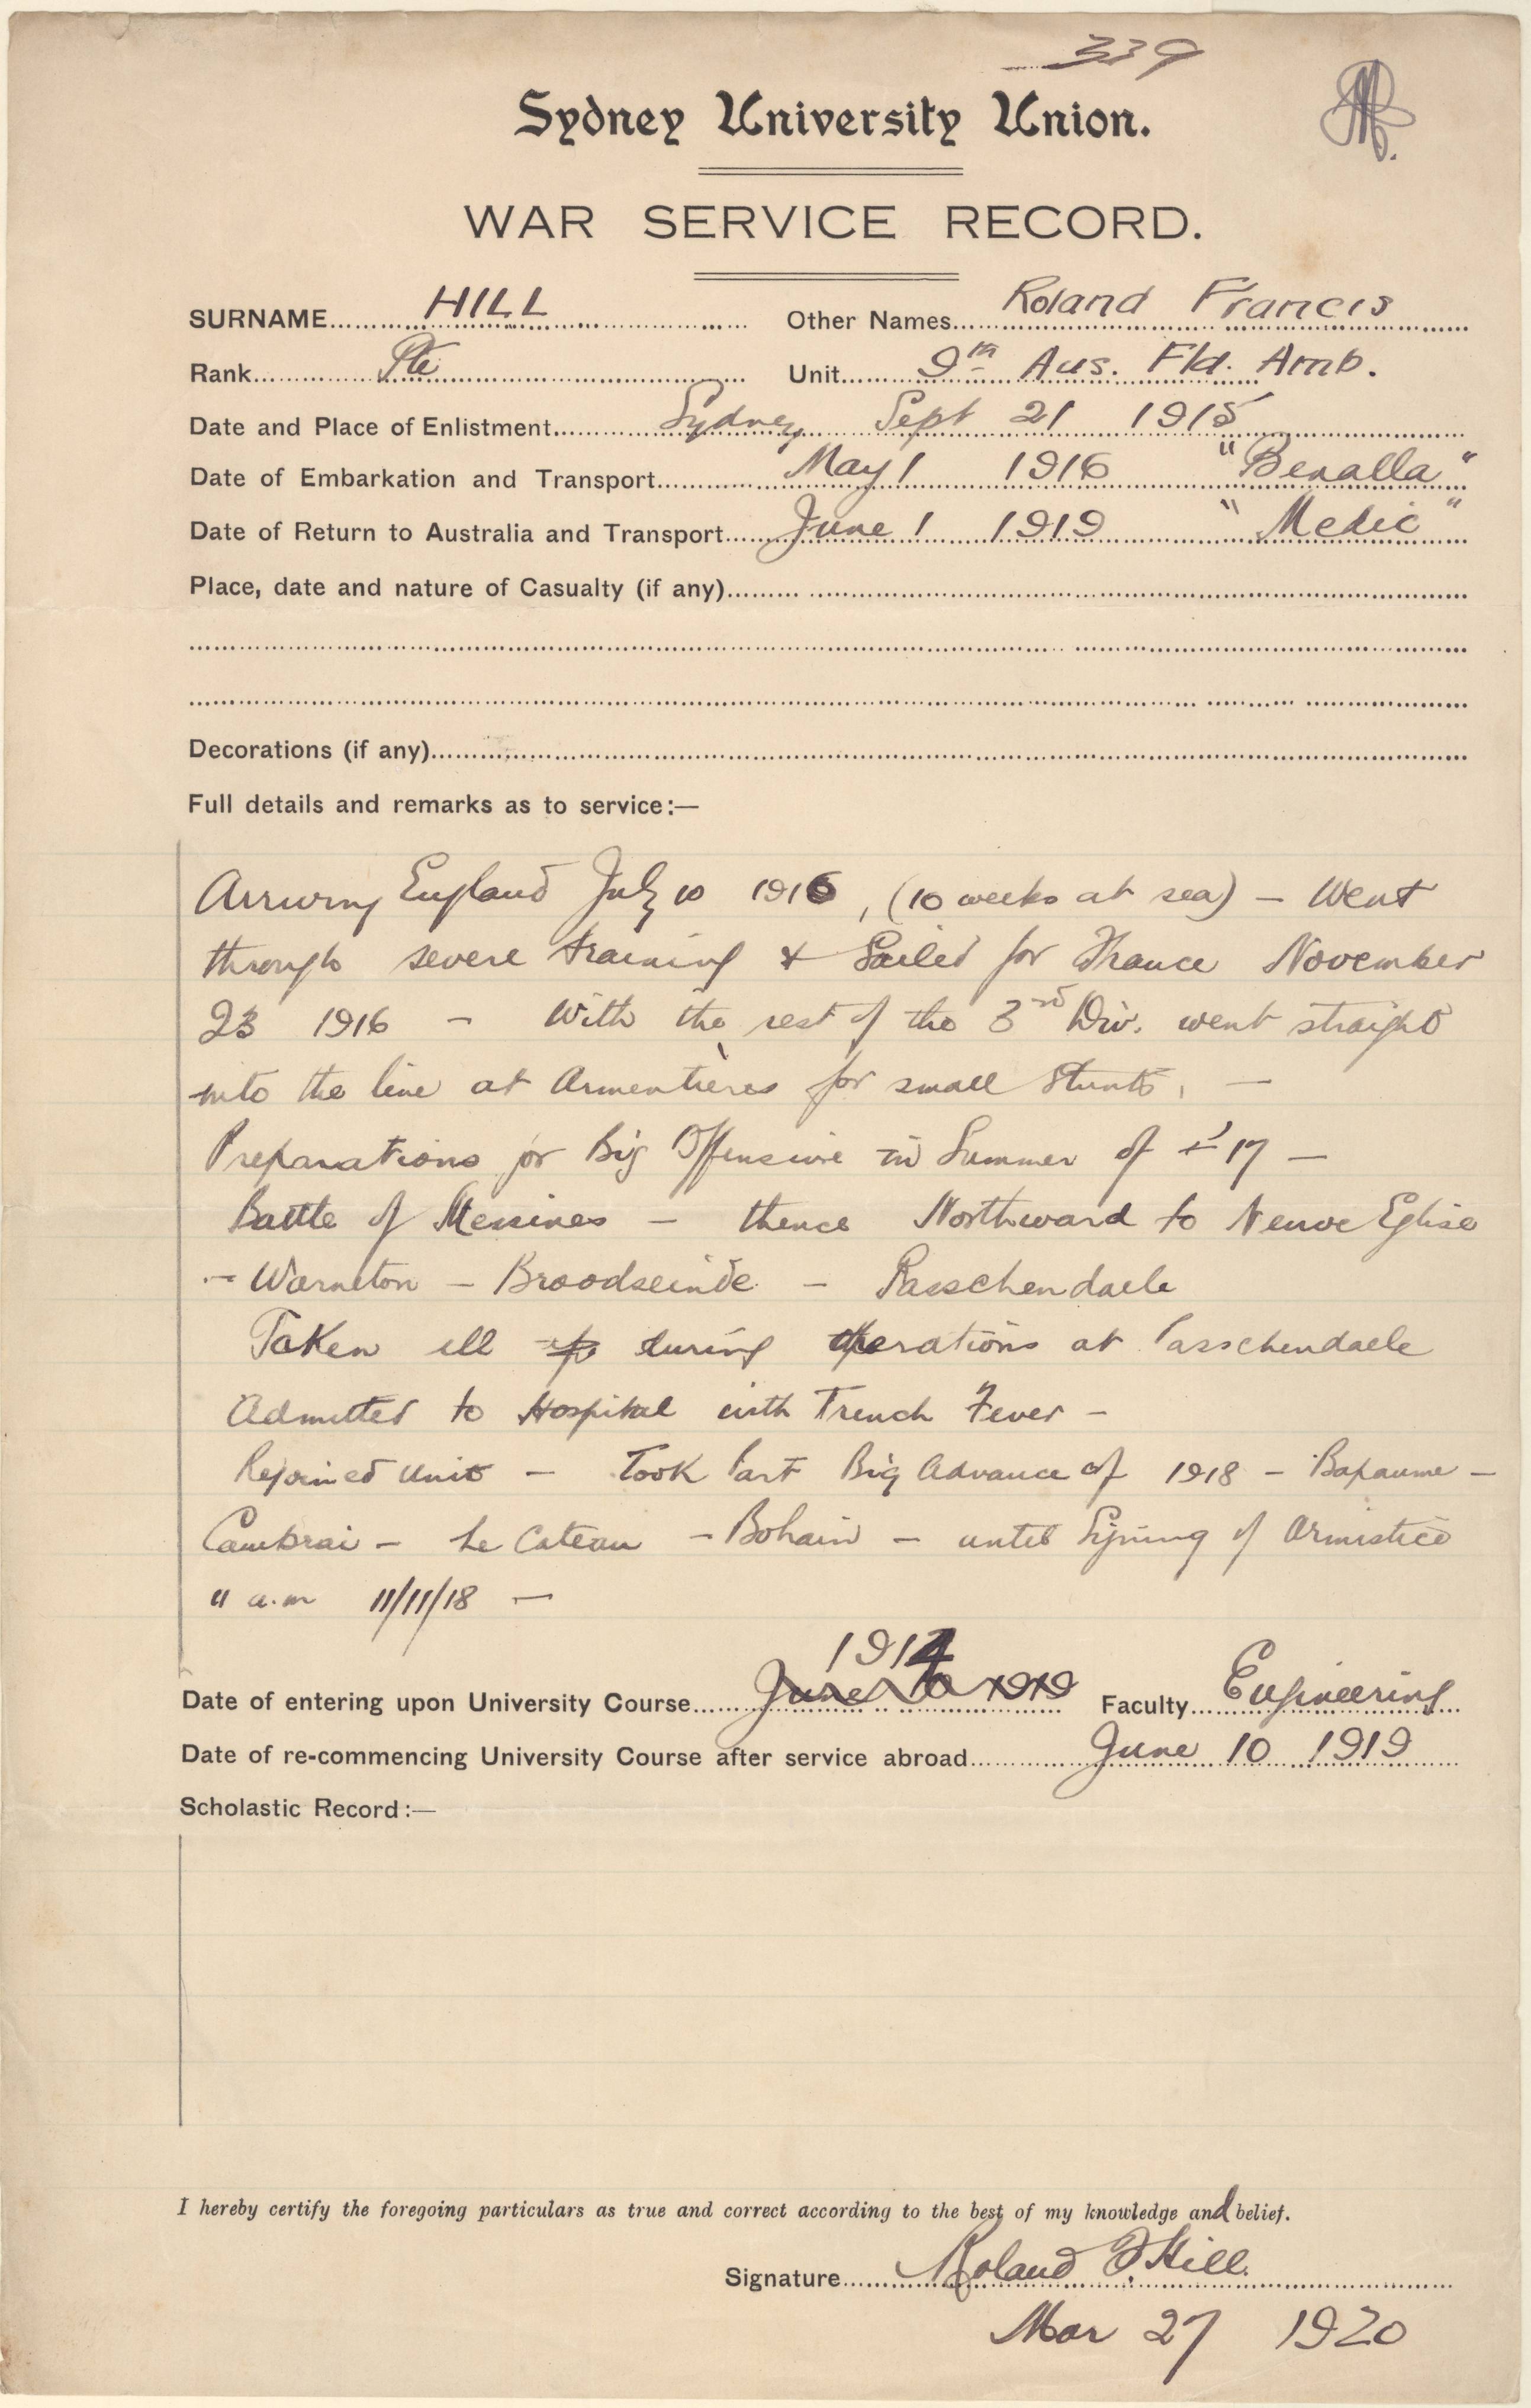 339
Sydney University Union.
WAR SERVICE RECORD.
SURNAME HILL Other Names Roland Francis
Rank Pte Unit 9th Aus. Fld. Amb.
Date and Place of Enlistment Sydney Sept 21 1915
Date of Embarkation and Transport May 1 1916 "Benalla"
Date of Return to Australia and Transport June 1 1919 "Medic"
Place, date and nature of Casualty (if any)
Decorations (if any)
Full details and remarks as to service:—
Arriving England July 10 1916, (10 weeks at sea) – Went
through severe training & Sailed for France November
23 1916 – With the rest of the 3rd Div. went straight
into the line at Armentières for small stunts, —
Preparations for Big Offensive in Summer of '17 —
Battle of Messines – thence Northward to Neuve Eglise
– Warneton – Broodseinde – Passchendaele
Taken ill during operations at Passchendaele
Admitted to Hospital with Trench Fever –
Rejoined Unit – Took Part Big Advance of 1918 – Bapaume –
Cambrai – Le Cateau – Bohain – until Signing of Armistice
11 a.m 11/11/18 —
1914
Date of entering upon University Course June 10 1919 Faculty Engineering
Date of re-commencing University Course after service abroad June 10 1919
Scholastic Record:—
I hereby certify the foregoing particulars as true and correct according to the best of my knowledge and belief.
Signature Roland F. Hill.
Mar 27 1920